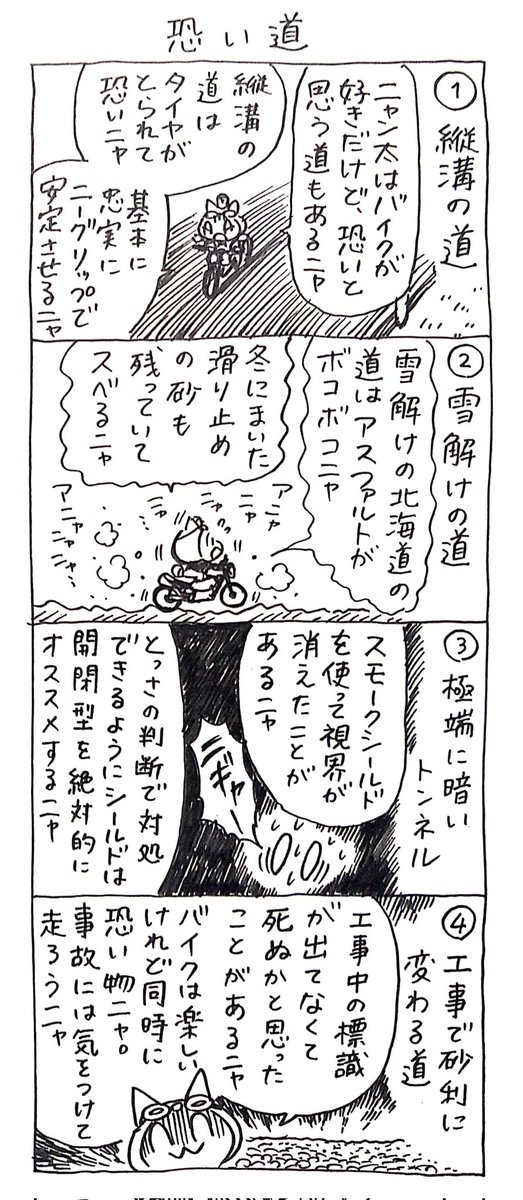 恐い道
①縦溝の道
ニャン太はバイクが
好きだけど、恐いと
思う道もあるニャ
縦溝の
道は
タイヤが
とられて
恐いニャ
基本に
忠実に
ニーグリップで
安定させるニャ
②雪解けの道
雪解けの北海道の
道はアスファルトが
ボコボコニャ
冬にまいた
滑り止め
の砂も
残っていて
スベるニャ
アニャ
ニャ
ニャッ
ニャ
ニャ
アニャ
ニャニャ…
③極端に暗い
トンネル
スモークシールド
を使って視界が
消えたことが
あるニャ
ニギャー
とっさの判断で対処
できるようにシールドは
開閉型を絶対的に
オススメするニャ
④工事で砂利に
変わる道
工事中の標識
が出てなくて
死ぬかと思った
ことがあるニャ
バイクは楽しい
けれど同時に
恐い物ニャ。
事故には気をつけて
走ろうニャ